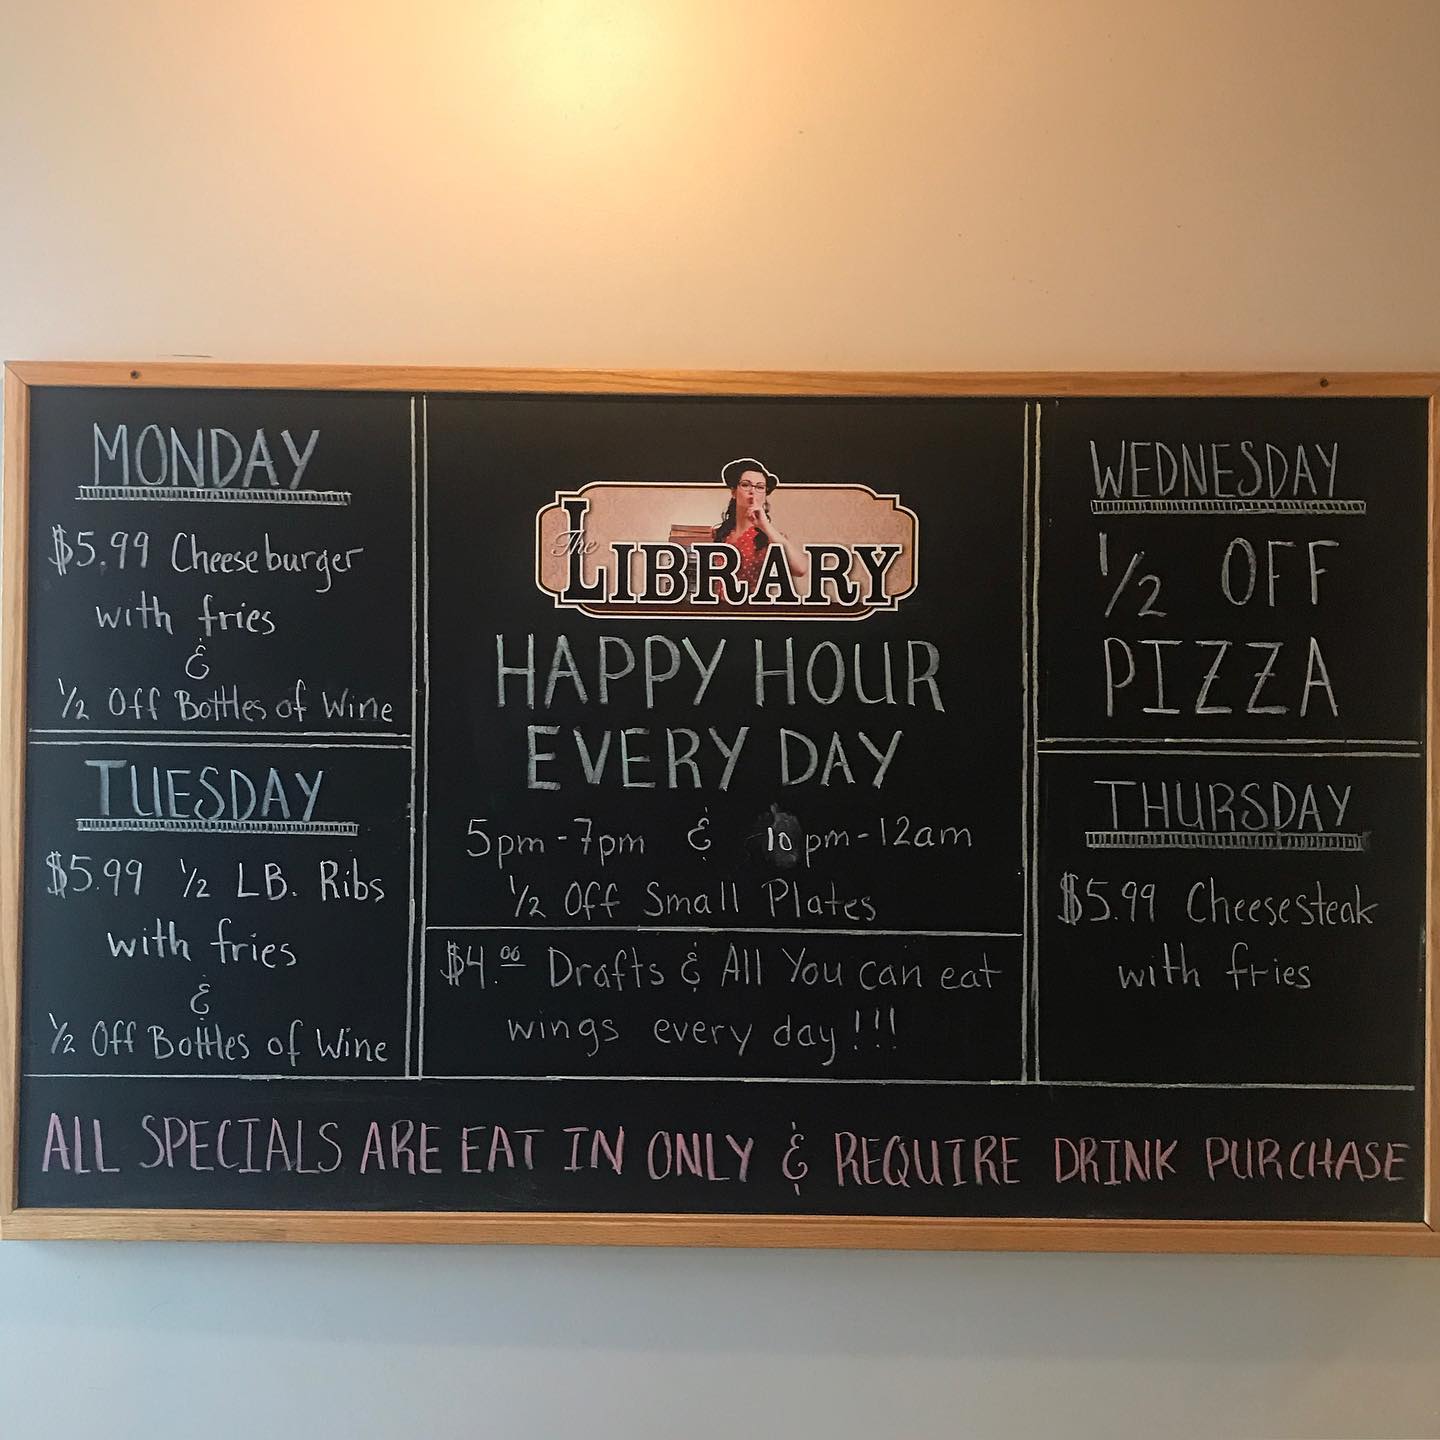 MONDAY
$5.99 Cheeseburger
with fries
&
1/2 Off Bottles of Wine
TUESDAY
$5.99 1/2 LB. Ribs
with fries
&
1/2 Off Bottles of Wine
The LIBRARY
HAPPY HOUR
EVERY DAY
5pm-7pm & 10pm-12am
1/2 Off Small Plates
$4.00 Drafts & All You can eat
wings every day!!!
WEDNESDAY
1/2 OFF
PIZZA
THURSDAY
$5.99 Cheesesteak
with fries
ALL SPECIALS ARE EAT IN ONLY & REQUIRE DRINK PURCHASE